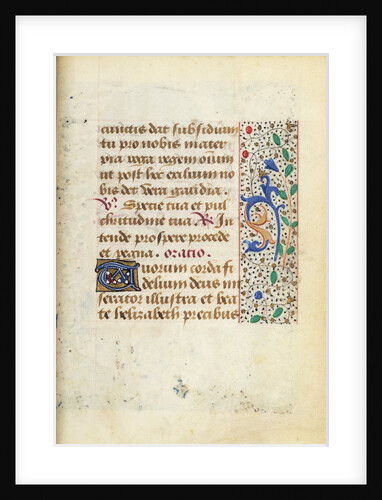 cunctis dat subsidium
tu pro nobis mater
pia roga regem omium
ut post hoc exilium no
bis det vera gaudia.
V. Specie tua et pul
chritudine tua. R. In
tende prospere procede
et regna. oratio.
Tuorum corda fi
delium deus mi
serator illustra et bea
te helizabeth precibus